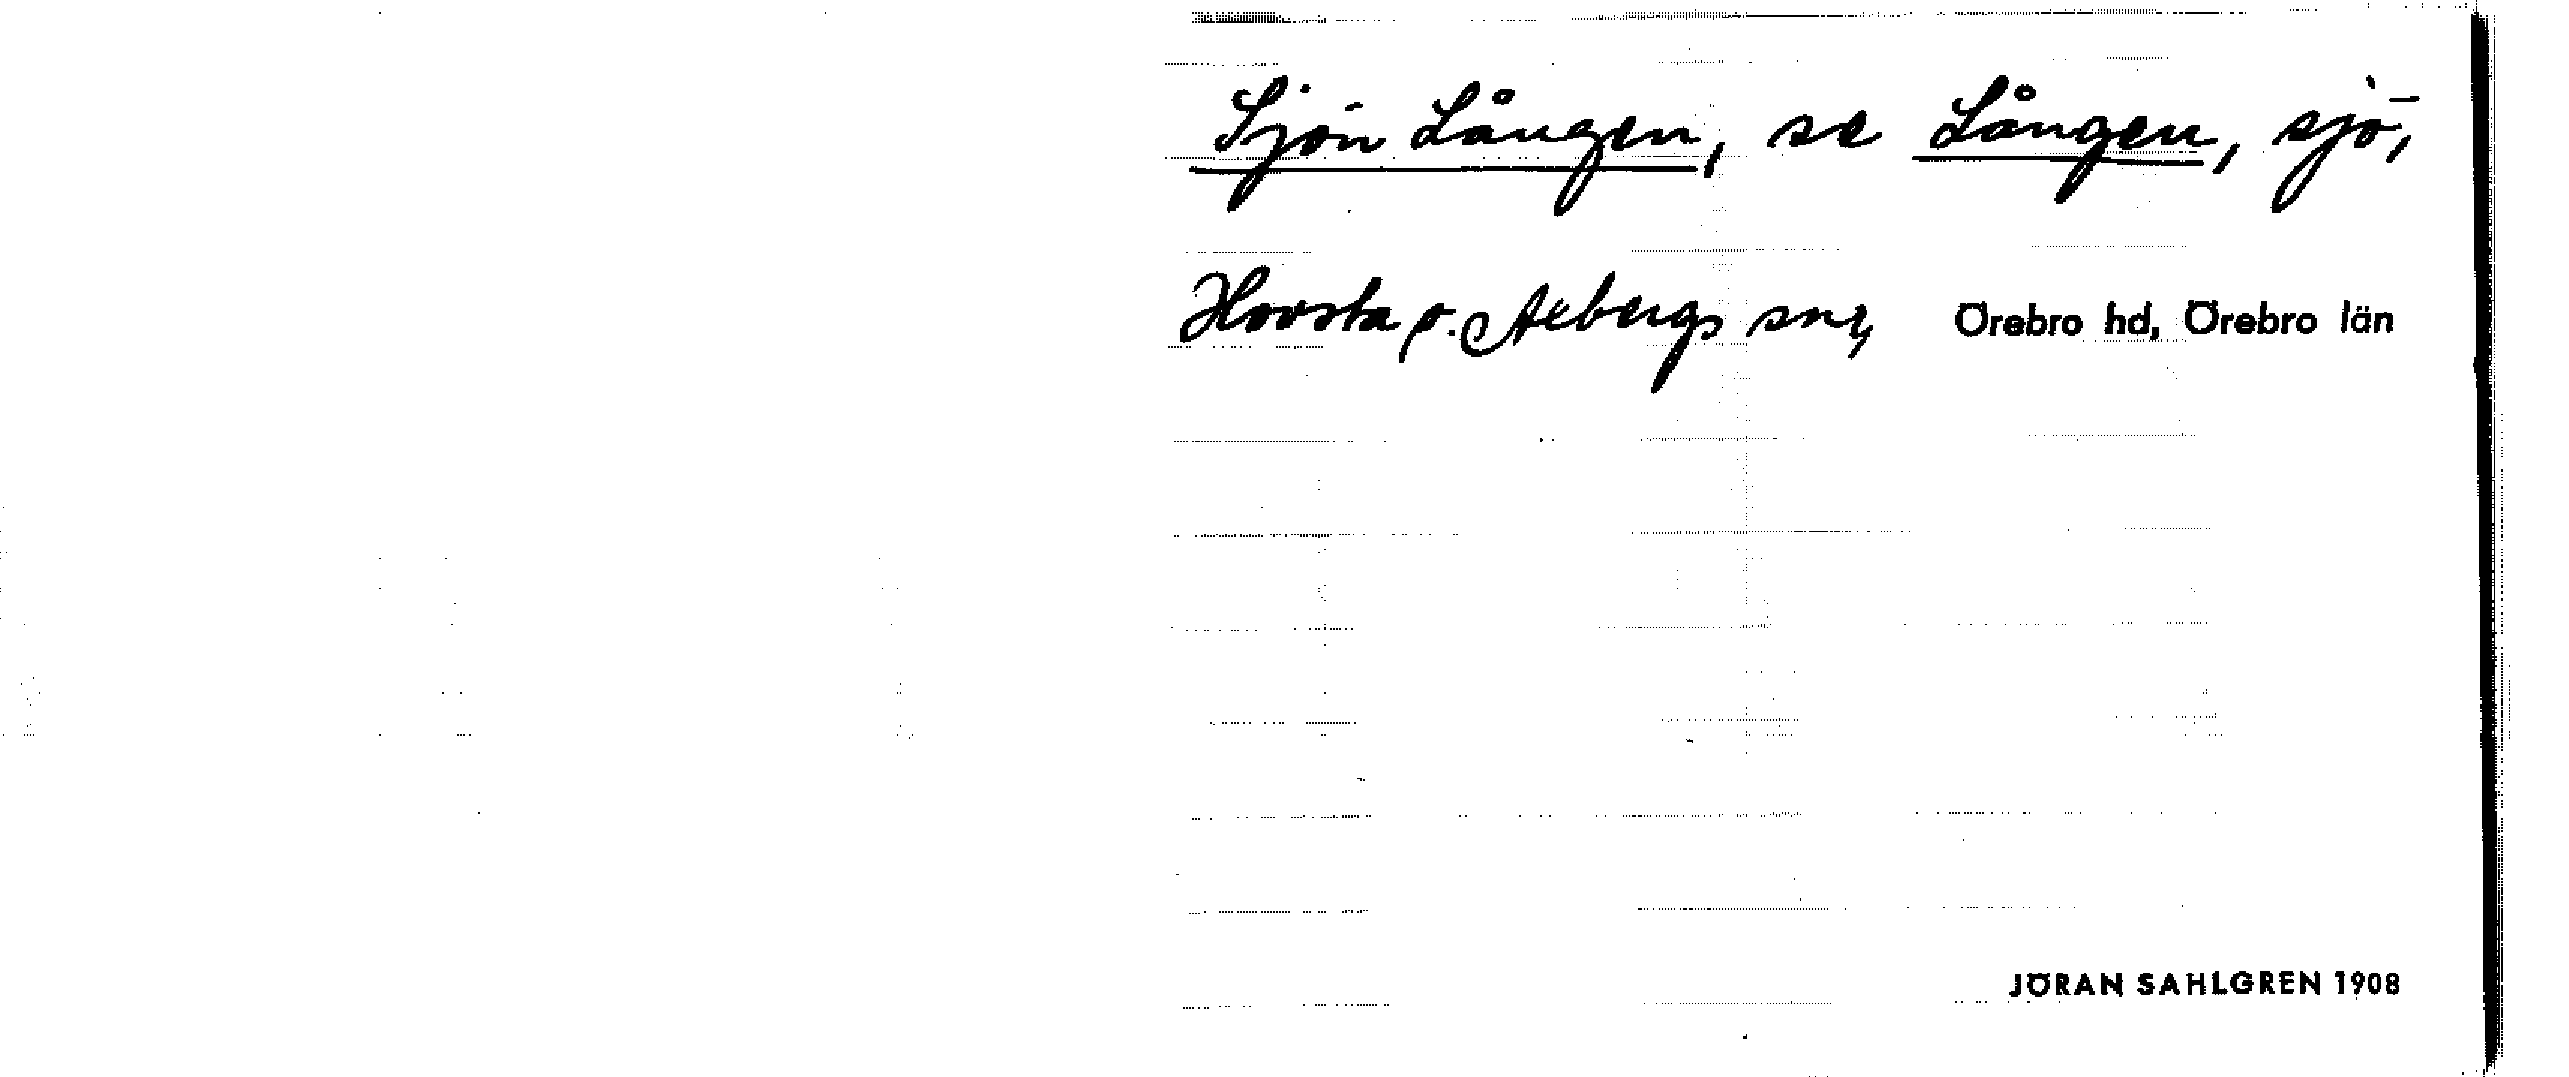 Sjön Lången, se Lången, sjö,
Hovsta o. Axbergs snr, Örebro hd, Örebro län
JÖRAN SAHLGREN 1908